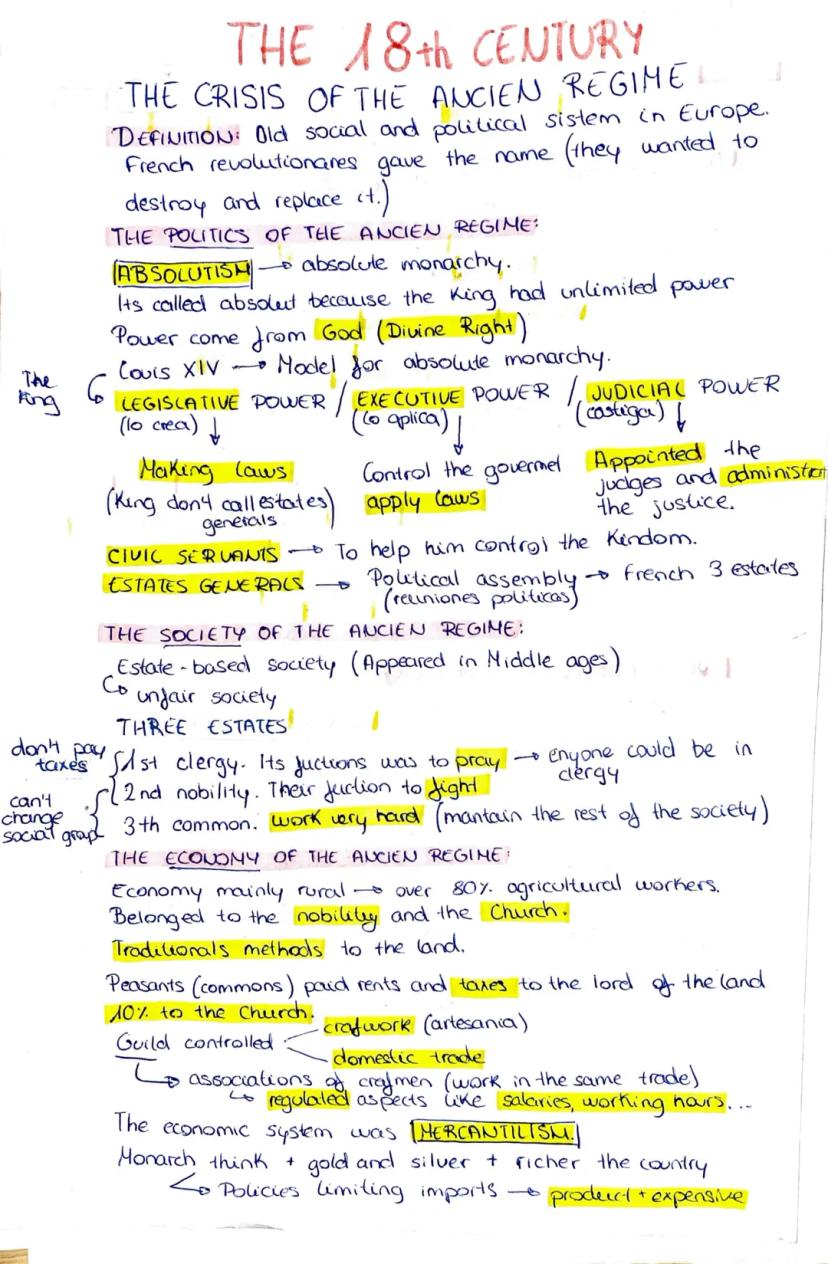 THE 18th CENTURY
THE CRISIS OF THE ANCIEN REGIME
DEFINITION: Old social and political sistem in Europe.
French revolutionares gave the name (they wanted to
destroy and replace it.)
THE POLITICS OF THE ANCIEN REGIME:
ABSOLUTISM → absolute monarchy.
Its called absolut because the King had unlimited power
Power come from God (Divine Right)
Louis XIV → Model for absolute monarchy.
The King
LEGISLATIVE POWER / EXECUTIVE POWER / JUDICIAL POWER
(lo crea) ↓ (lo aplica) ↓ (castiga) ↓
Making laws Control the governel Appointed the
(King don't call estates generals) apply laws judges and administer
the justice.
CIVIC SERVANTS → To help him control the Kindom.
ESTATES GENERALS → Political assembly → French 3 estates
(reuniones politicas)
THE SOCIETY OF THE ANCIEN REGIME:
Estate-based society (Appeared in Middle ages)
↳ unfair society
THREE ESTATES
don't pay taxes
1st clergy. Its fuctions was to pray → enyone could be in clergy
2nd nobility. Their fuction to fight
can't change social grap
3th common. work very hard (mantain the rest of the society)
THE ECONOMY OF THE ANCIEN REGIME:
Economy mainly rural → over 80% agricultural workers.
Belonged to the nobility and the Church.
Traditionals methods to the land.
Peasants (commons) paid rents and taxes to the lord of the land
10% to the Church.
Guild controlled crafwork (artesania)
domestic trade
↳ associations of crafmen (work in the same trade)
↳ regulated aspects like salaries, working hours...
The economic system was MERCANTILISM.
Monarch think + gold and silver + richer the country
↳ Policies limiting imports → product + expensive